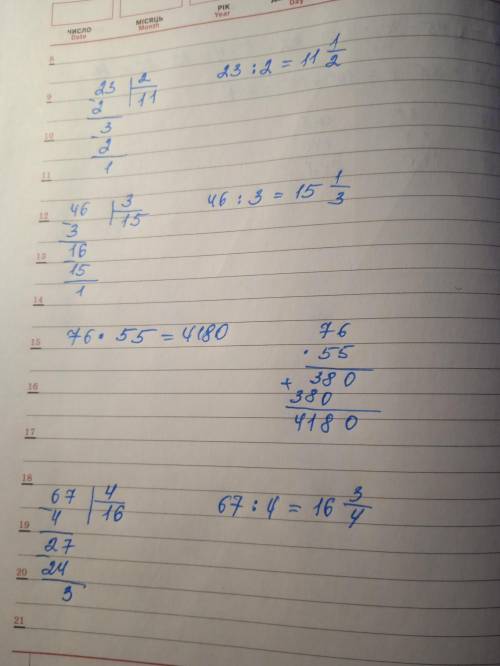 ЧИСЛО МІСЯЦЬ РІК
Date Month Year Day
8
9
10
11
12
13
14
15
16
17
18
19
20
21
23 2
2 11
3
2
1
23 : 2 = 11 1/2
46 3
3 15
16
15
1
46 : 3 = 15 1/3
76 · 55 = 4180
76
· 55
+ 380
380
4180
67 4
4 16
27
24
3
67 : 4 = 16 3/4